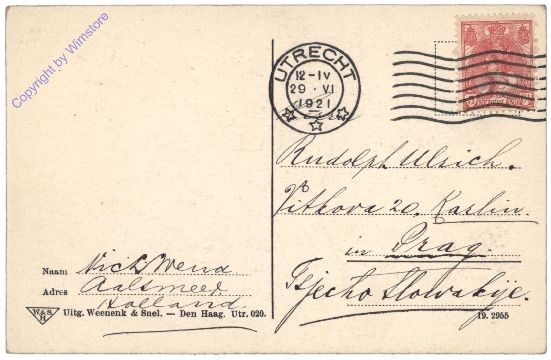 Copyright by Wimstore
UTRECHT
12-IV
29 · VI
1921
NEDERLAND
Rudolph Ulrich.
Vitkova 20. Karlin.
in Prag.
Tsjecho Slowakije.
Naam Nick Wend
Adres Aalsmeer
Holland
W.& S.
H.
Uitg. Weenenk & Snel. — Den Haag. Utr. 020.
19. 2955